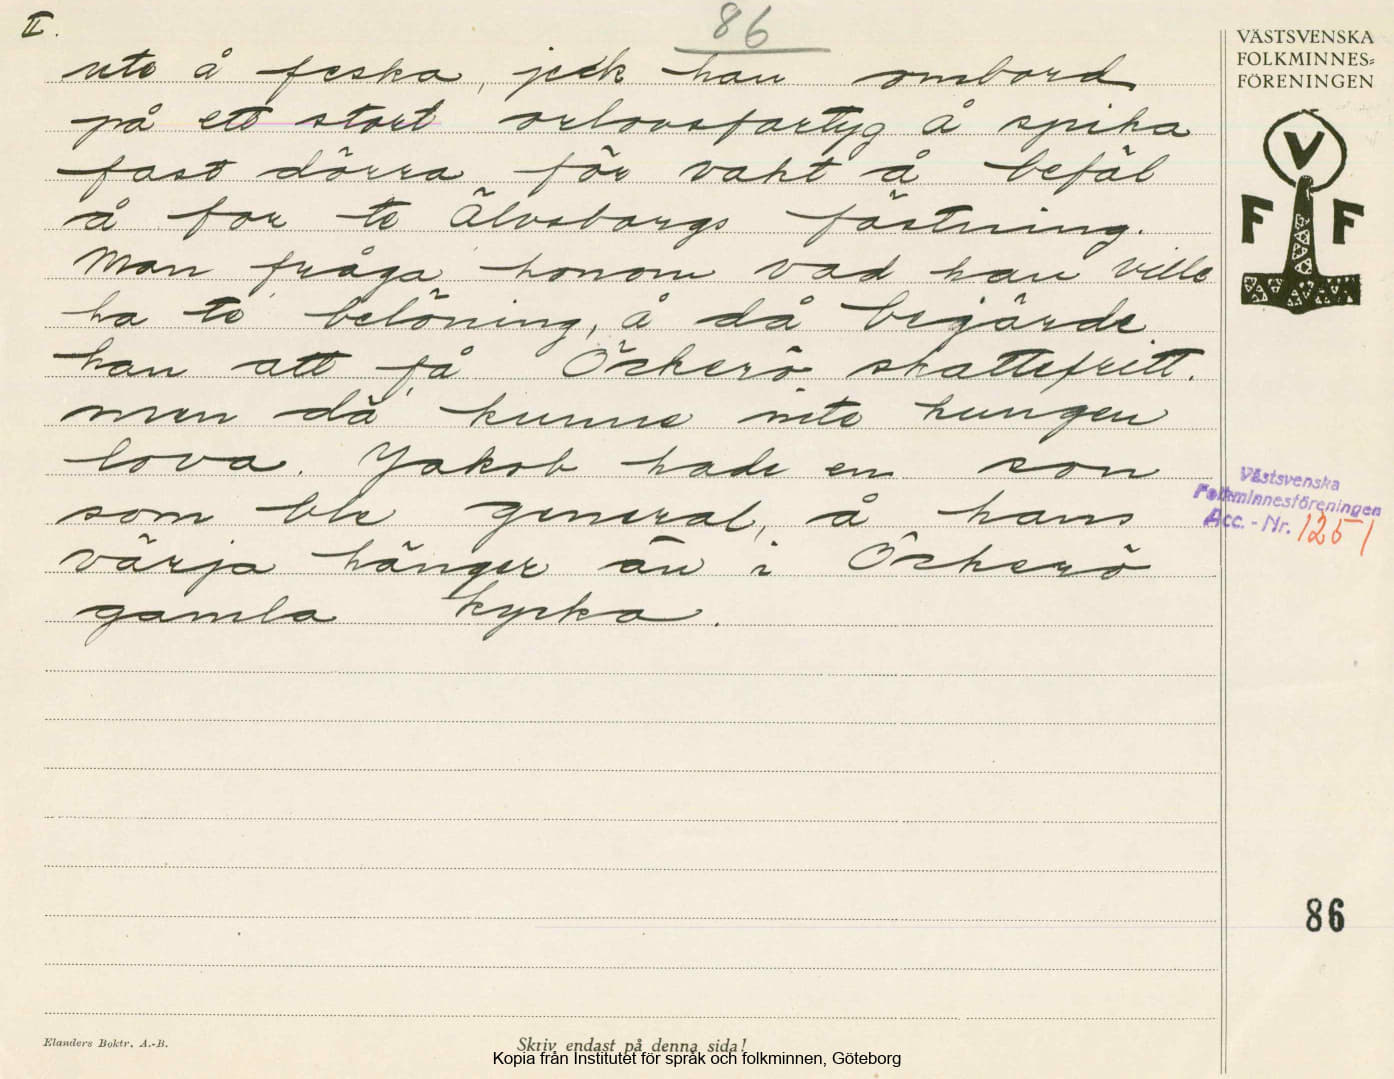 II.
86
ute å feska, jeck han ombord
på ett stort orlovsfartyg å spika
fast dörra för vakt å befäl
å for te Älvsborgs fästning.
Man fråga honom vad han ville
ha te belöning, å då begärde
han att få Öckerö skattefritt.
men då kunne inte kungen
lova. Jakob hade en son
som ble general, å hans
värja hänger än i Öckerö
gamla kyrka.
VÄSTSVENSKA
FOLKMINNES=
FÖRENINGEN
V
F F
Västsvenska
Folkminnesföreningen
Acc. - Nr. 1251
86
Elanders Boktr. A.-B.
Skriv endast på denna sida!
Kopia från Institutet för språk och folkminnen, Göteborg